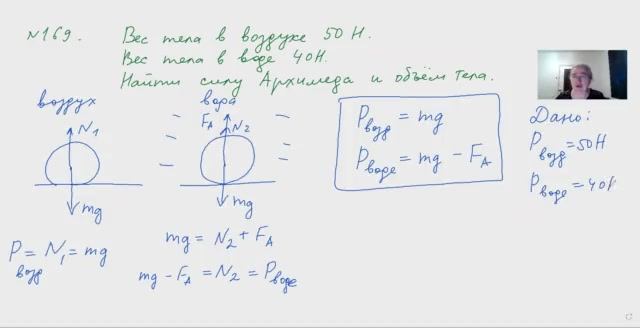 №169. Вес тела в воздухе 50 Н.
Вес тела в воде 40Н.
Найти силу Архимеда и объём тела.
воздух
N1
mg
P возд = N1 = mg
вора
FA N2
mg
mg = N2 + FA
mg - FA = N2 = P воде
P возд = mg
P воде = mg - FA
Дано:
P возд = 50Н
P воде = 40Н